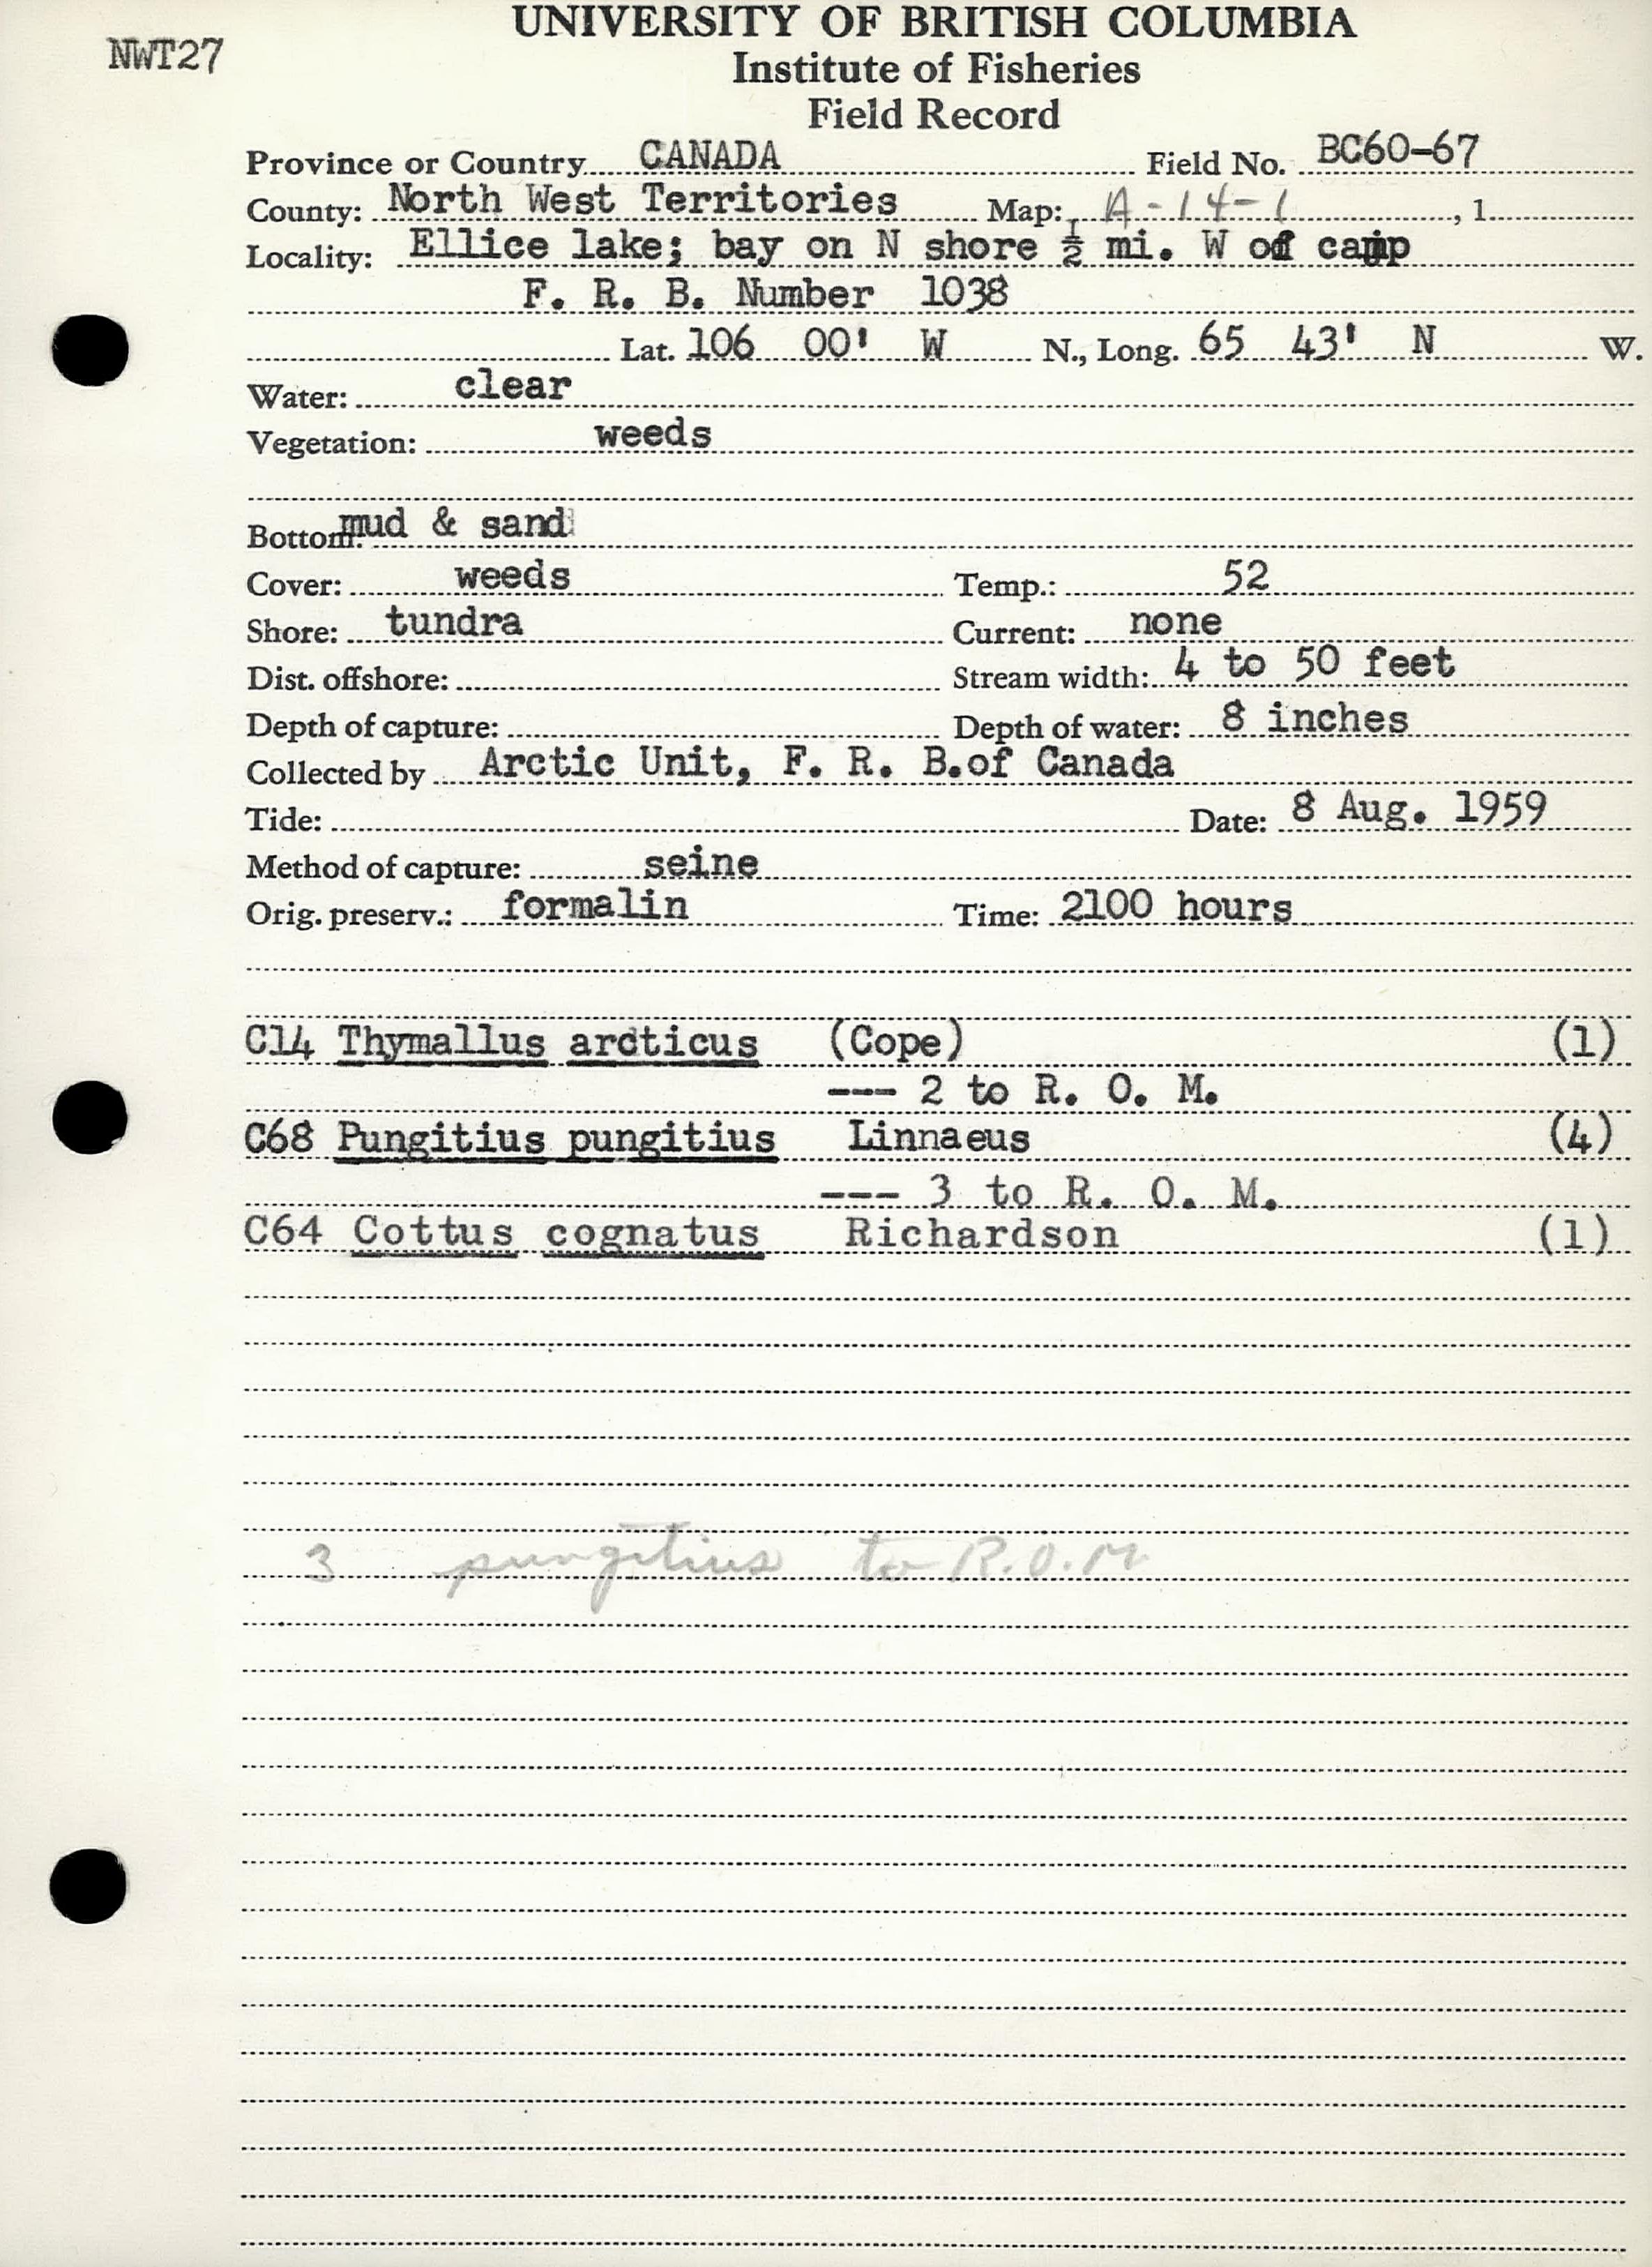 UNIVERSITY OF BRITISH COLUMBIA
NWT27
Institute of Fisheries
Field Record
Province or Country CANADA Field No. BC60-67
County: North West Territories Map: A-14-1 , 1.
Locality: Ellice lake; bay on N shore ½ mi. W of camp
F. R. B. Number 1038
Lat. 106 00' W N., Long. 65 43' N W.
Water: clear
Vegetation: weeds
Bottom: mud & sand
Cover: weeds Temp.: 52
Shore: tundra Current: none
Dist. offshore: Stream width: 4 to 50 feet
Depth of capture: Depth of water: 8 inches
Collected by Arctic Unit, F. R. B.of Canada
Tide: Date: 8 Aug. 1959
Method of capture: seine
Orig. preserv.: formalin Time: 2100 hours
C14 Thymallus arcticus (Cope) (1)
--- 2 to R. O. M.
C68 Pungitius pungitius Linnaeus (4)
--- 3 to R. O. M.
C64 Cottus cognatus Richardson (1)
3 pungitius to R.O.M